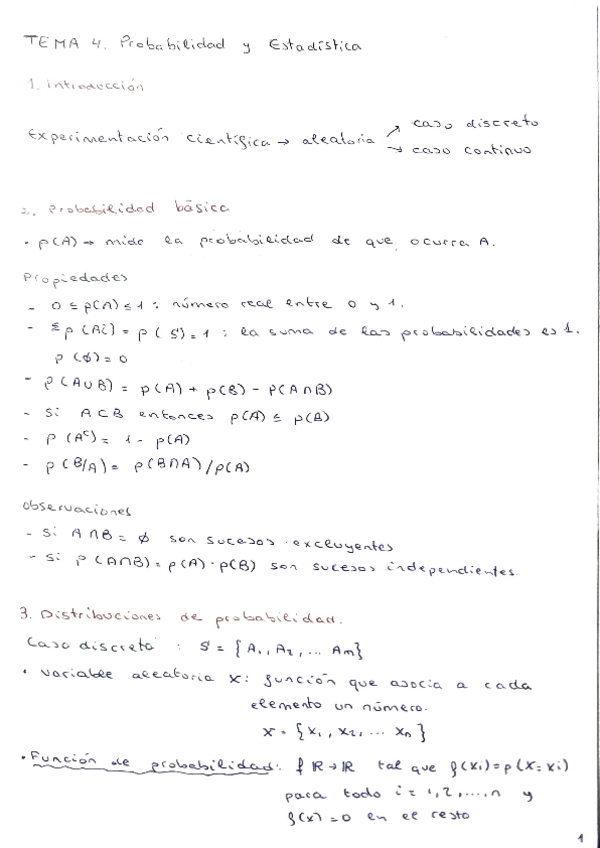 TEMA 4. Probabilidad y Estadística
1. introducción
Experimentación científica → aleatoria ↗ caso discreto
→ caso continuo
2. Probabilidad básica
• p(A) → mide la probabilidad de que ocurra A.
Propiedades
- 0 ≤ p(A) ≤ 1 : número real entre 0 y 1.
- Σ p(Ai) = p(S) = 1 : la suma de las probabilidades es 1.
p(ϕ) = 0
- p(A∪B) = p(A) + p(B) - p(A∩B)
- Si A⊂B entonces p(A) ≤ p(B)
- p(Aᶜ) = 1 - p(A)
- p(B/A) = p(B∩A)/p(A)
observaciones
- Si A∩B = ϕ son sucesos excluyentes
- Si p(A∩B) = p(A)·p(B) son sucesos independientes
3. Distribuciones de probabilidad.
Caso discreto : S = {A₁, A₂, ... Am}
• variable aleatoria X: función que asocia a cada
elemento un número.
X = {X₁, X₂, ... Xn}
• Función de probabilidad: f ℝ→ℝ tal que f(xi) = p(X=xi)
para todo i = 1,2,...,n y
f(x) = 0 en el resto
1